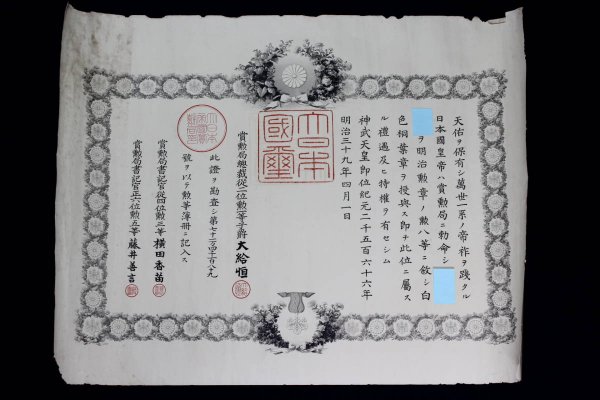 天佑ヲ保有シ萬世一系ノ帝祚ヲ踐タル
日本國皇帝ハ賞勲局ニ勅命シ
ヲ明治勲章ノ勲八等ニ敘シ白
色桐葉章ヲ授與ス即チ此位ニ屬ス
ル禮遇及ヒ特權ヲ有セシム
神武天皇即位紀元二千五百六十六年
明治三十九年四月一日
大日本國璽
賞勲局總裁從二位勲一等子爵大給恒
此證ヲ勘査シ第七十三萬四千百八十九
號ヲ以テ勲等簿冊ニ記入ス
賞勲局書記官從四位勲三等橫田香苗
賞勲局書記官正六位勲五等藤井善言